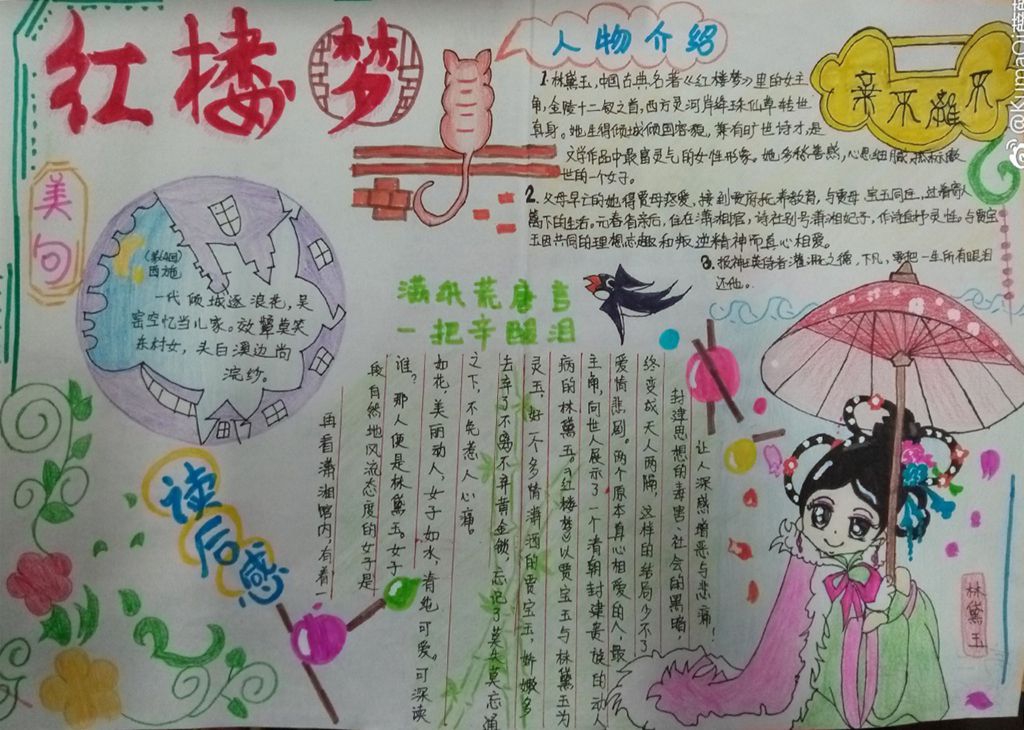 红楼梦
人物介绍
1.林黛玉,中国古典名著《红楼梦》里的女主
角,金陵十二钗之首,西方灵河岸绛珠仙草转世
真身。她生得倾城倾国容貌,兼有旷世诗才,是
文学作品中最富灵气的女性形象。她多愁善感,心思细腻,孤标傲
世的一个女子。
2.父母早亡的她得贾母疼爱,接到贾府抚养教育,与贾母、宝玉同住,过着寄人
篱下的生活。元春省亲后,住在潇湘馆,诗社别号潇湘妃子,作诗自抒灵性。与贾宝
玉因共同的理想志趣和叛逆精神而真心相爱。
3.报神瑛侍者灌溉之德,下凡,要把一生所有眼泪
还他。
亲不离不
美句
(第64回)
西施
一代倾城逐浪花,吴
宫空忆当儿家。效颦莫笑
东村女,头白溪边尚
浣纱。
满纸荒唐言
一把辛酸泪
读后感
让人深感憎恶与悲痛!
封建思想的毒害、社会的黑暗
终变成天人两隔,这样的结局少不了
爱情悲剧。两个原本真心相爱的人,最
主角,向世人展示了一个清朝封建贵族的动人
病的林黛玉。《红楼梦》以贾宝玉与林黛玉为
灵玉,好一个多情潇洒的贾宝玉,娇嫩多
去辛了不离不弃黄金锁,忘记了莫失莫忘通
之下,不免惹人心痛。
如花,美丽动人,女子如水,清纯可爱。可深读
谁?那人便是林黛玉。女子
段自然地风流态度的女子是
再看潇湘馆内,有着一
林黛玉